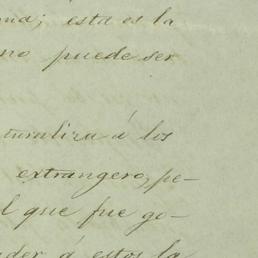 ma; esta es la
no puede ser
turaliza á los
extrangero, pe-
l que fue go-
der á estos la